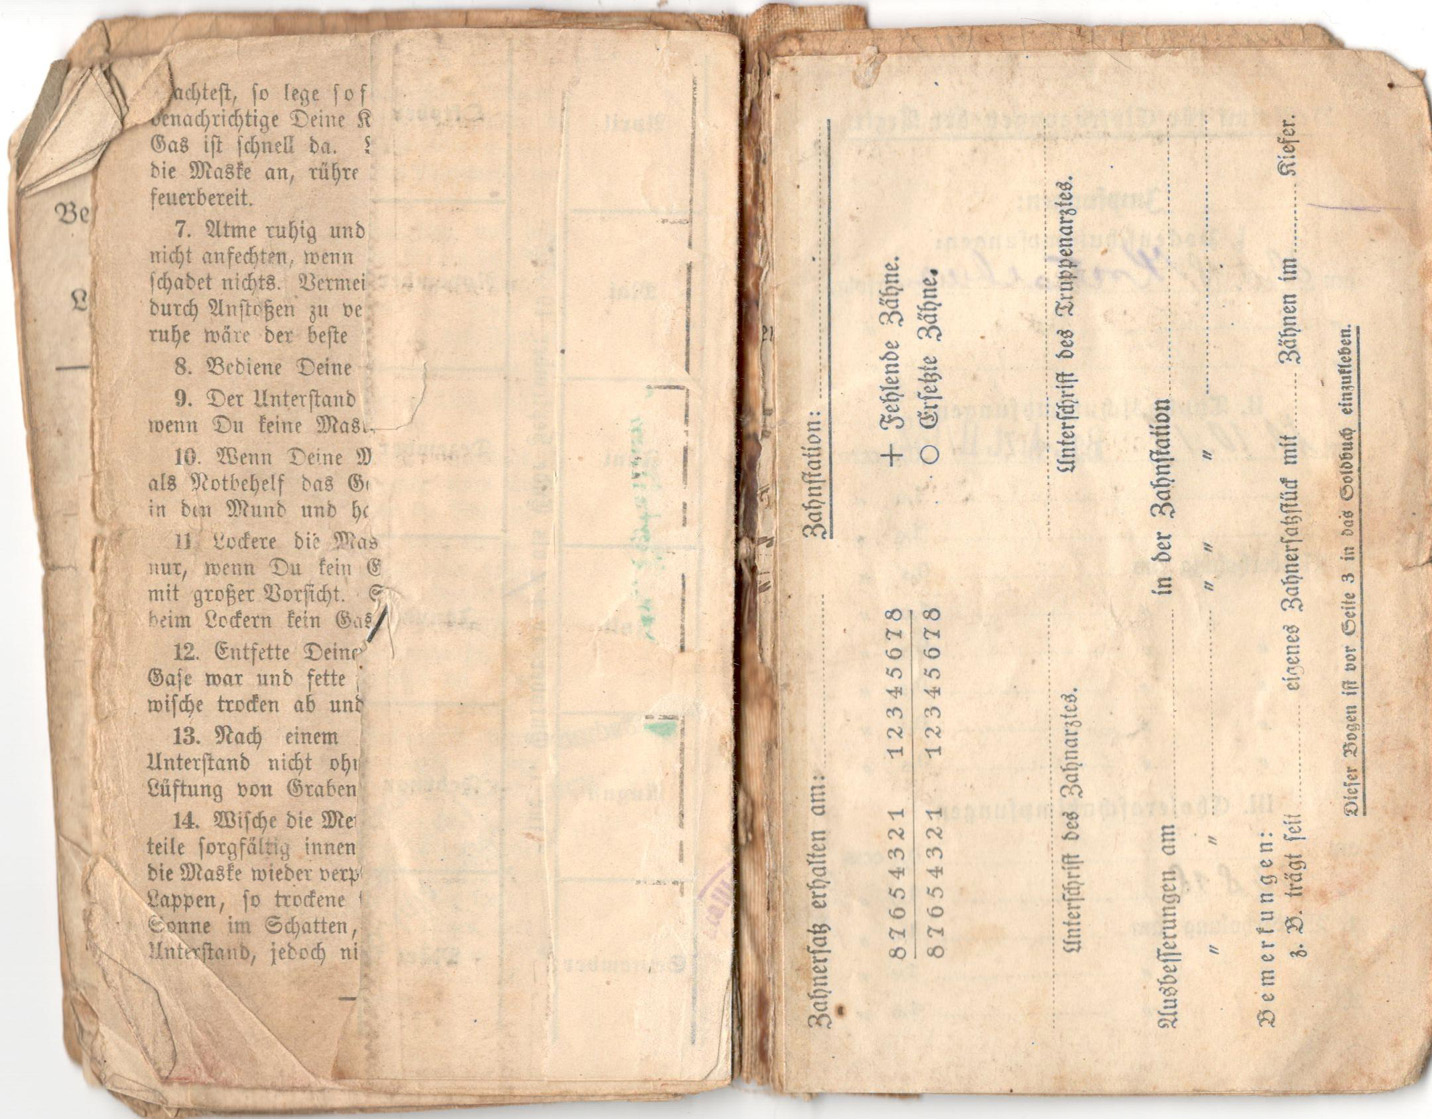 Be
achtest, so lege sof
benachrichtige Deine K
Gas ist schnell da.
die Maske an, rühre
feuerbereit.
7. Atme ruhig und
nicht anfechten, wenn
schadet nichts. Vermei
durch Anstoßen zu ve
ruhe wäre der beste
8. Bediene Deine
9. Der Unterstand
wenn Du keine Mas
10. Wenn Deine M
als Notbehelf das Ge
in den Mund und ha
11. Lockere die Mas
nur, wenn Du kein G
mit großer Vorsicht. S
beim Lockern kein Gas
12. Entfette Deine
Gase war und fette
wische trocken ab und
13. Nach einem
Unterstand nicht ohn
Lüftung von Graben
14. Wische die Me
teile sorgfältig innen
die Maske wieder verp
Lappen, so trockene
Sonne im Schatten,
Unterstand, jedoch ni
Zahnersatz erhalten am: Zahnstation:
87654321 12345678 + Fehlende Zähne.
87654321 12345678 ○ Ersetzte Zähne.
Unterschrift des Zahnarztes. Unterschrift des Truppenarztes.
Ausbesserungen am in der Zahnstation
" " " " "
Bemerkungen:
z. B. trägt seit eigenes Zahnersatzstück mit Zähnen im Kiefer.
Dieser Bogen ist vor Seite 3 in das Soldbuch einzukleben.